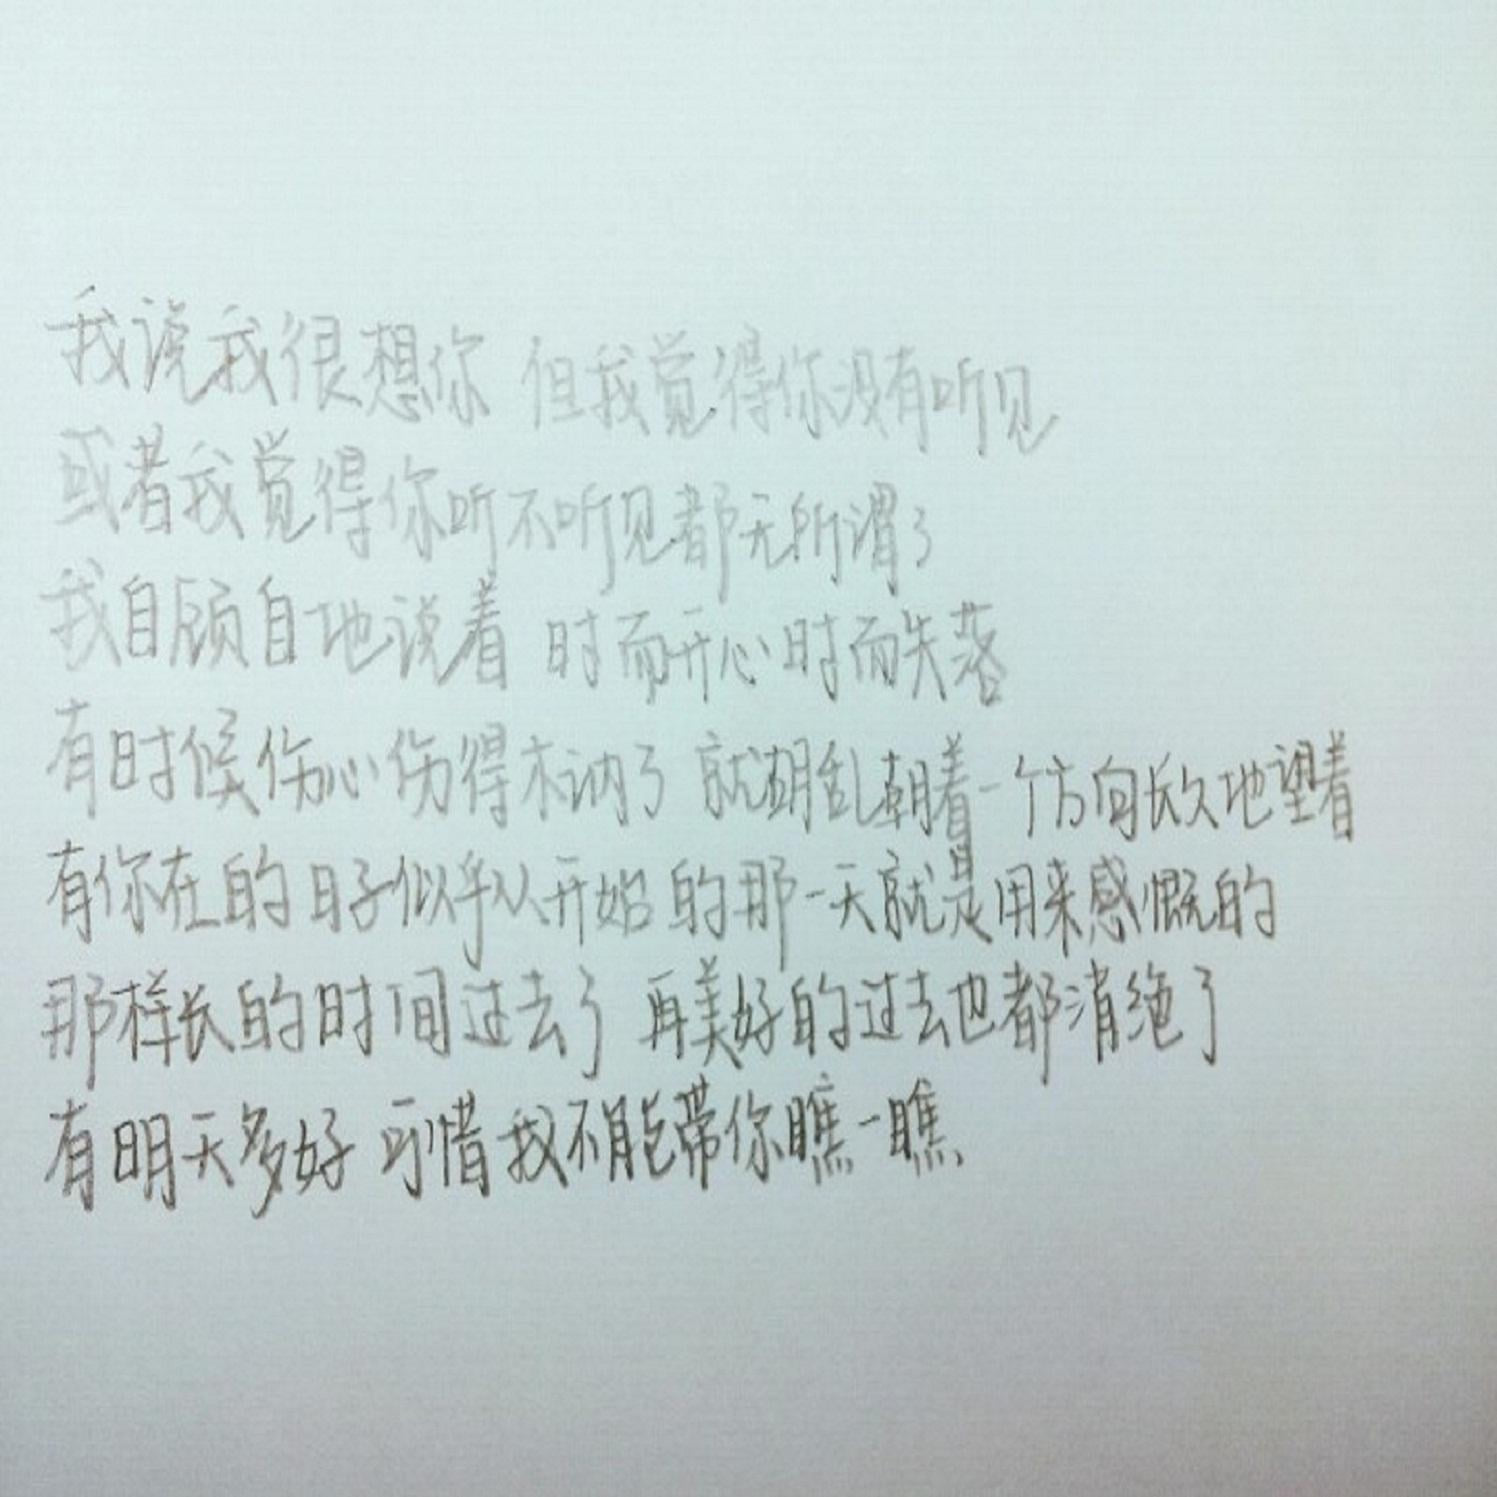 我说我很想你 但我觉得你没有听见
或者我觉得你听不听见都无所谓了
我自顾自地说着 时而开心时而失落
有时候伤心伤得木讷了 就胡乱朝着一个方向长久地望着
有你在的日子似乎从开始的那一天就是用来感慨的
那样长的时间过去了 再美好的过去也都消绝了
有明天多好 可惜我不能带你瞧一瞧.